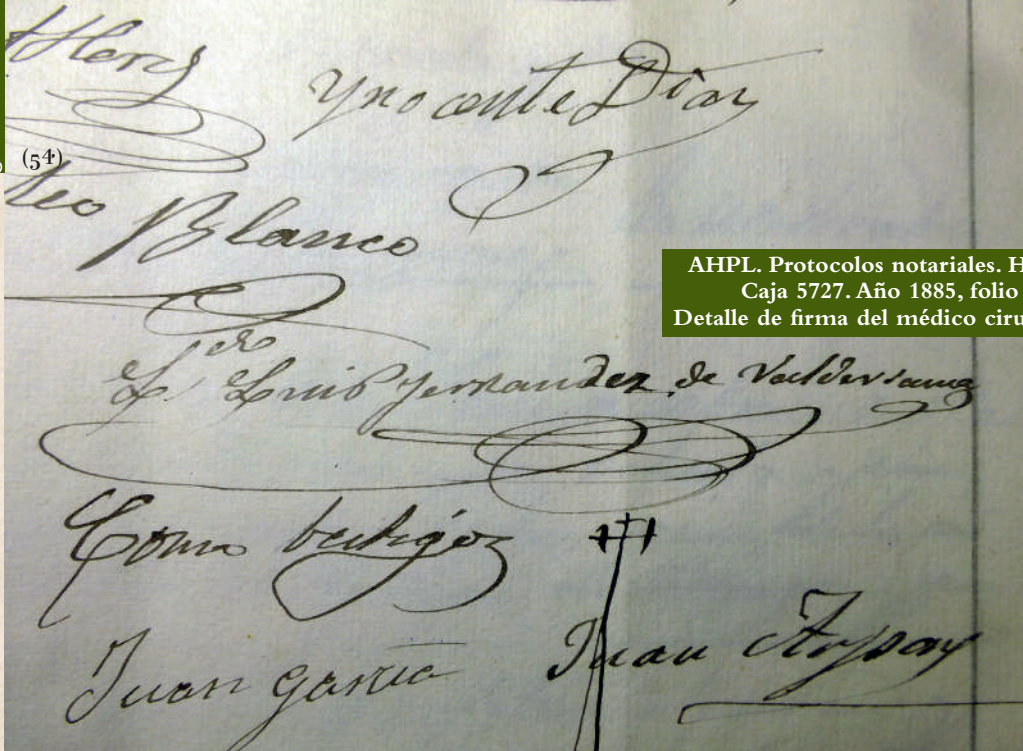 Ynocente Diaz
(54)
Blanco
AHPL. Protocolos notariales. H
Caja 5727. Año 1885, folio
Detalle de firma del médico ciru
Luis Fernandez de Valderrama
Como testigos
Juan Garcia Juan